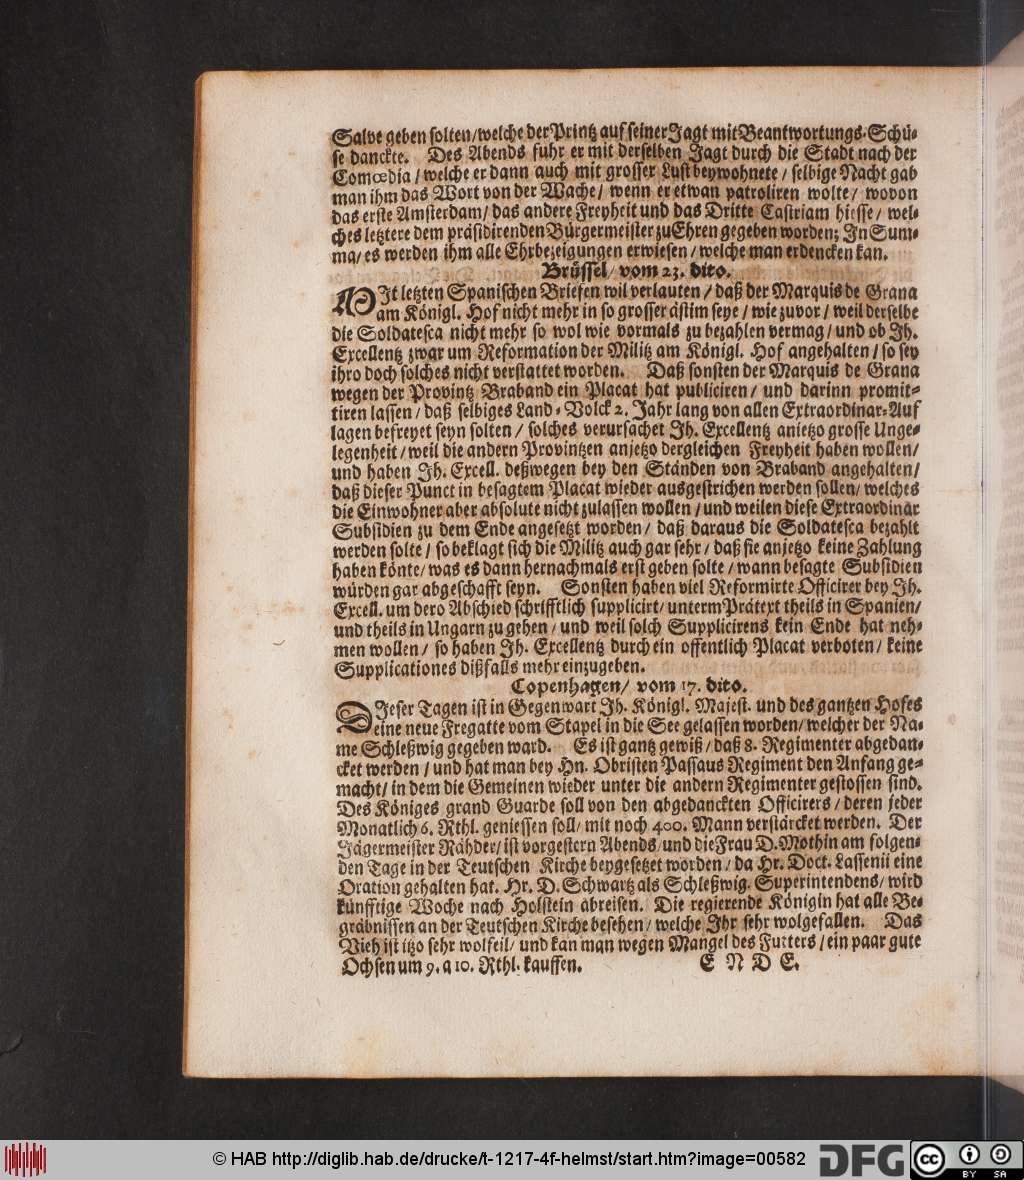 Salve geben solten/welche der Printz auf seiner Jagt mit Beantwortungs-Schü-
se danckte. Des Abends fuhr er mit derselben Jagt durch die Stadt nach der
Comœdia/welche er dann auch mit grosser Lust beywohnete/selbige Nacht gab
man ihm das Wort von der Wache/wenn er etwan patroliren wolte/wovon
das erste Amsterdam/das andere Freyheit und das Dritte Castriam hiesse/wel-
ches letztere dem präsidirenden Bürgermeister zu Ehren gegeben worden; In Sum-
ma/es werden ihm alle Ehrbezeigungen erwiesen/welche man erdencken kan.
Brüssel/vom 23. dito.
MIt letzten Spanischen Briefen wil verlauten/daß der Marquis de Grana
am Königl. Hof nicht mehr in so grosser ästim seye/wie zuvor/weil derselbe
die Soldatesca nicht mehr so wol wie vormals zu bezahlen vermag/und ob Jh.
Excellentz zwar um Reformation der Militz am Königl. Hof angehalten/so sey
ihro doch solches nicht verstattet worden. Daß sonsten der Marquis de Grana
wegen der Provintz Braband ein Placat hat publiciren/und darinn promit-
tiren lassen/daß selbiges Land-Volck 2. Jahr lang von allen Extraordinar-Auf
lagen befreyet seyn solten/solches verursachet Jh. Excellentz anietzo grosse Unge-
legenheit/weil die andern Provintzen anjetzo dergleichen Freyheit haben wollen/
und haben Jh. Excell. deßwegen bey den Ständen von Braband angehalten/
daß dieser Punct in besagtem Placat wieder ausgestrichen werden sollen/welches
die Einwohner aber absolute nicht zulassen wollen/und weilen diese Extraordinar
Subsidien zu dem Ende angesetzt worden/daß daraus die Soldatesca bezahlt
werden solte/so beklagt sich die Militz auch gar sehr/daß sie anjetzo keine Zahlung
haben könte/was es dann hernachmals erst geben solte/wann besagte Subsidien
würden gar abgeschafft seyn. Sonsten haben viel Reformirte Officirer bey Jh.
Excell. um dero Abschied schrifftlich supplicirt/unterm Prätext theils in Spanien/
und theils in Ungarn zu gehen/und weil solch Supplicirens kein Ende hat neh-
men wollen/so haben Jh. Excellentz durch ein offentlich Placat verboten/keine
Supplicationes dißfalls mehr einzugeben.
Copenhagen/vom 17. dito.
DJeser Tagen ist in Gegenwart Jh. Königl. Majest. und des gantzen Hofes
eine neue Fregatte vom Stapel in die See gelassen worden/welcher der Na-
me Schleßwig gegeben ward. Es ist gantz gewiß/daß 8. Regimenter abgedan-
cket werden/und hat man bey Hn. Obristen Passaus Regiment den Anfang ge-
macht/in dem die Gemeinen wieder unter die andern Regimenter gestossen sind.
Des Königes grand Guarde soll von den abgedanckten Officirers/deren jeder
Monatlich 6. Rthl. geniessen soll/mit noch 400. Mann verstärcket werden. Der
Jägermeister Rähder/ist vorgestern Abends/und die Frau D. Mothin am folgen-
den Tage in der Teutschen Kirche beygesetzet worden/da Hr. Doct. Lassenii eine
Oration gehalten hat. Hr. D. Schwartz als Schleßwig. Superintendens/wird
künfftige Woche nach Holstein abreisen. Die regierende Königin hat alle Be-
gräbnissen an der Teutschen Kirche besehen/welche Jhr sehr wolgefallen. Das
Vieh ist itzo sehr wolfeil/und kan man wegen Mangel des Futters/ein paar gute
Ochsen um 9. a 10. Rthl. kauffen. E N D E.
© HAB http://diglib.hab.de/drucke/t-1217-4f-helmst/start.htm?image=00582
DFG
cc BY SA